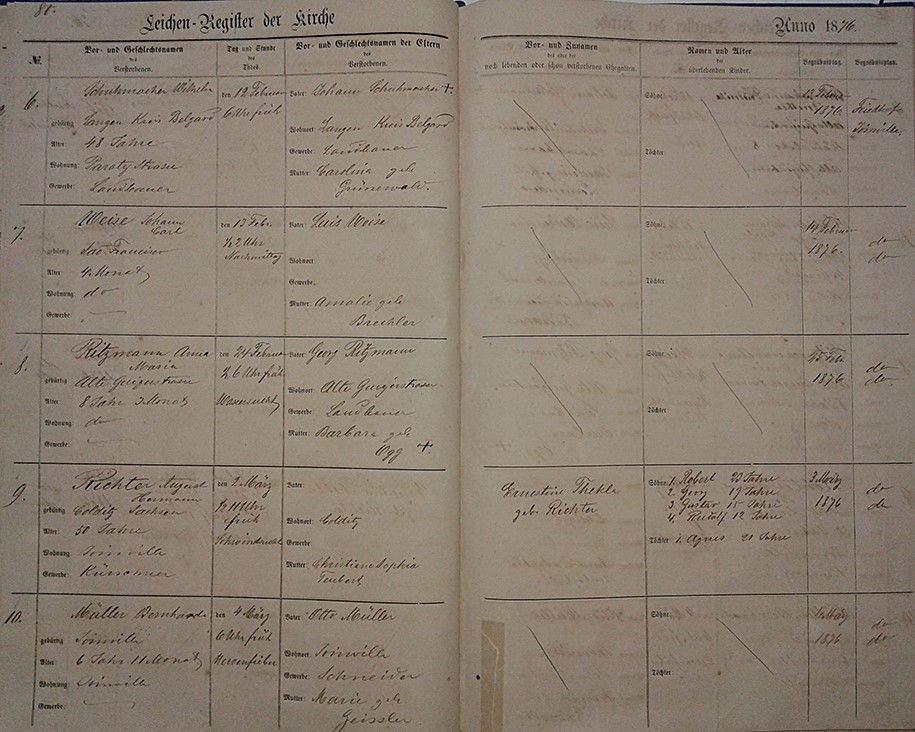 80.
Leichen-Register der Kirche
Anno 1876.
№
Vor- und Geschlechtsnamen
des
Verstorbenen.
Tag und Stunde
des
Todes.
Vor- und Geschlechtsnamen der Eltern
des
Verstorbenen.
Vor- und Zunamen
des oder der
noch lebenden oder schon verstorbenen Ehegatten.
Namen und Alter
der
überlebenden Kinder.
Begräbnißtag.
Begräbnißplatz.
6.
Schuhmacher Wilhelm
gebürtig Langen Kreis Belgard
Alter: 48 Jahre
Wohnung:
Gewerbe: Landbauer
den 12 Februar
6 Uhr früh
Vater: Johann Schuhmacher +.
Wohnort Langen Kreis Belgard
Gewerbe: Landbauer
Mutter: Carolina geb
Grünewald.
Söhne:
Töchter
1876
Friedhof
Joinville,
7.
Weise Johann
Carl
gebürtig Sao Francisco
Alter: 4 Monat
Wohnung: do
Gewerbe:
den 13 Febr.
½ 2 Uhr
Nachmittag
Vater: Luis Weise
Wohnort
Gewerbe:
Mutter: Amalie geb
Brechler
Söhne:
Töchter
14 Februar
1876.
do
do
8.
Ritzmann Anna
Maria
gebürtig Alte Guigerstrasse
Alter: 8 Jahr 3 Monat
Wohnung: do
Gewerbe:
den 24 Februar
½ 6 Uhr früh
Wassersucht
Vater: Georg Ritzmann
Wohnort: Alte Guigerstrasse
Gewerbe Landbauer
Mutter: Barbara geb
Ogg +
Söhne:
Töchter
25 Febr
1876
do
do
9.
Richter August
Hermann
gebürtig Colditz Sachsen
Alter: 50 Jahre
Wohnung: Joinville
Gewerbe: Kürschner
den 2 März
½ 11 Uhr
früh
Schwindsucht
Vater:
Wohnort: Colditz
Gewerbe:
Mutter: Christiane Sophia
Teubert
Ernestine Thekla
geb. Richter
Söhne: 1. Robert 23 Jahre
2. Georg 19 Jahre
3. Gustav 15 Jahre
4. Rudolf 12 Jahre
Töchter 1. Agnes 21 Jahre
3 März
1876
do
do
10.
Müller Bernharde
gebürtig Joinville
Alter: 6 Jahr 11 Monat
Wohnung: Joinville
Gewerbe:
den 4 März
6 Uhr früh
Nervenfieber
Vater Otto Müller
Wohnort: Joinville
Gewerbe: Schneider
Mutter: Marie geb
Geissler
Söhne:
Töchter:
März
1876
do
do